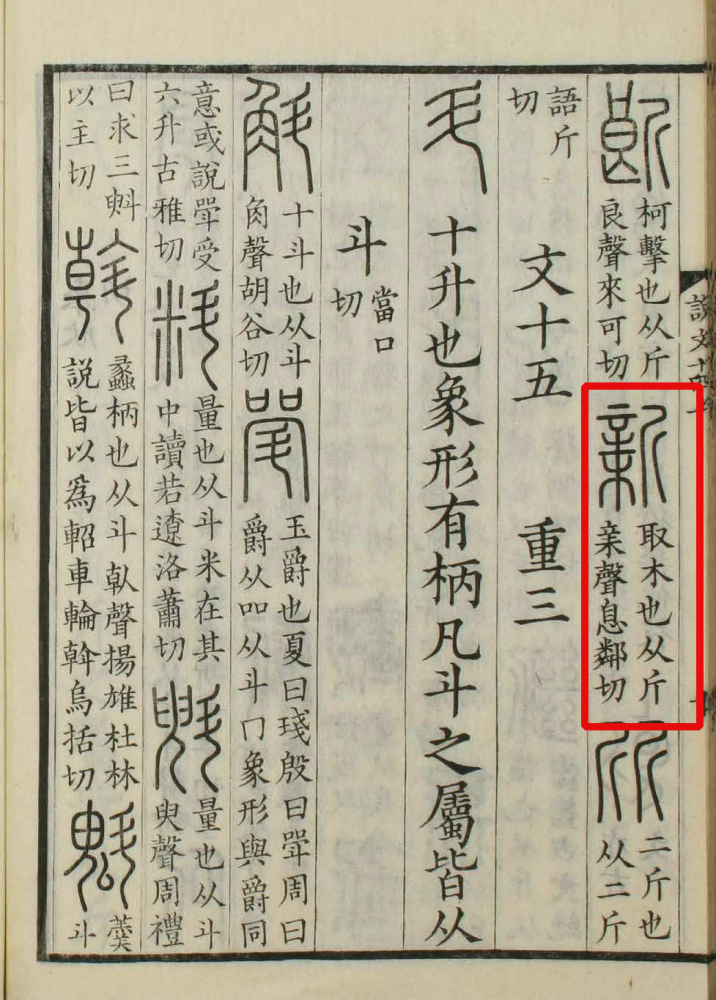 柯擊也从斤
良聲來可切
新
取木也从斤
亲聲息鄰切
斦
二斤也
从二斤
語斤
切
文十五 重三
斗
十升也象形有柄凡斗之屬皆从
斗
當口
切
斛
十斗也从斗
角聲胡谷切
斝
玉爵也夏曰琖殷曰斝周曰
爵从吅从斗冂象形與爵同
意或說斝受
六升古雅切
料
量也从斗米在其
中讀若遼洛蕭切
斞
量也从斗
臾聲周禮
曰求三斞
以主切
斡
蠡柄也从斗倝聲揚雄杜林
說皆以爲軺車輪斡烏括切
魁
羹
斗
說文十四上